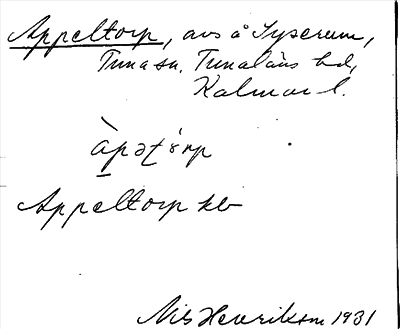 Appeltorp, avs å Syserum,
Tuna sn, Tunaläns hd,
Kalmar l.
àpəʈórp
Appeltorp kb
Nils Henrikson 1931